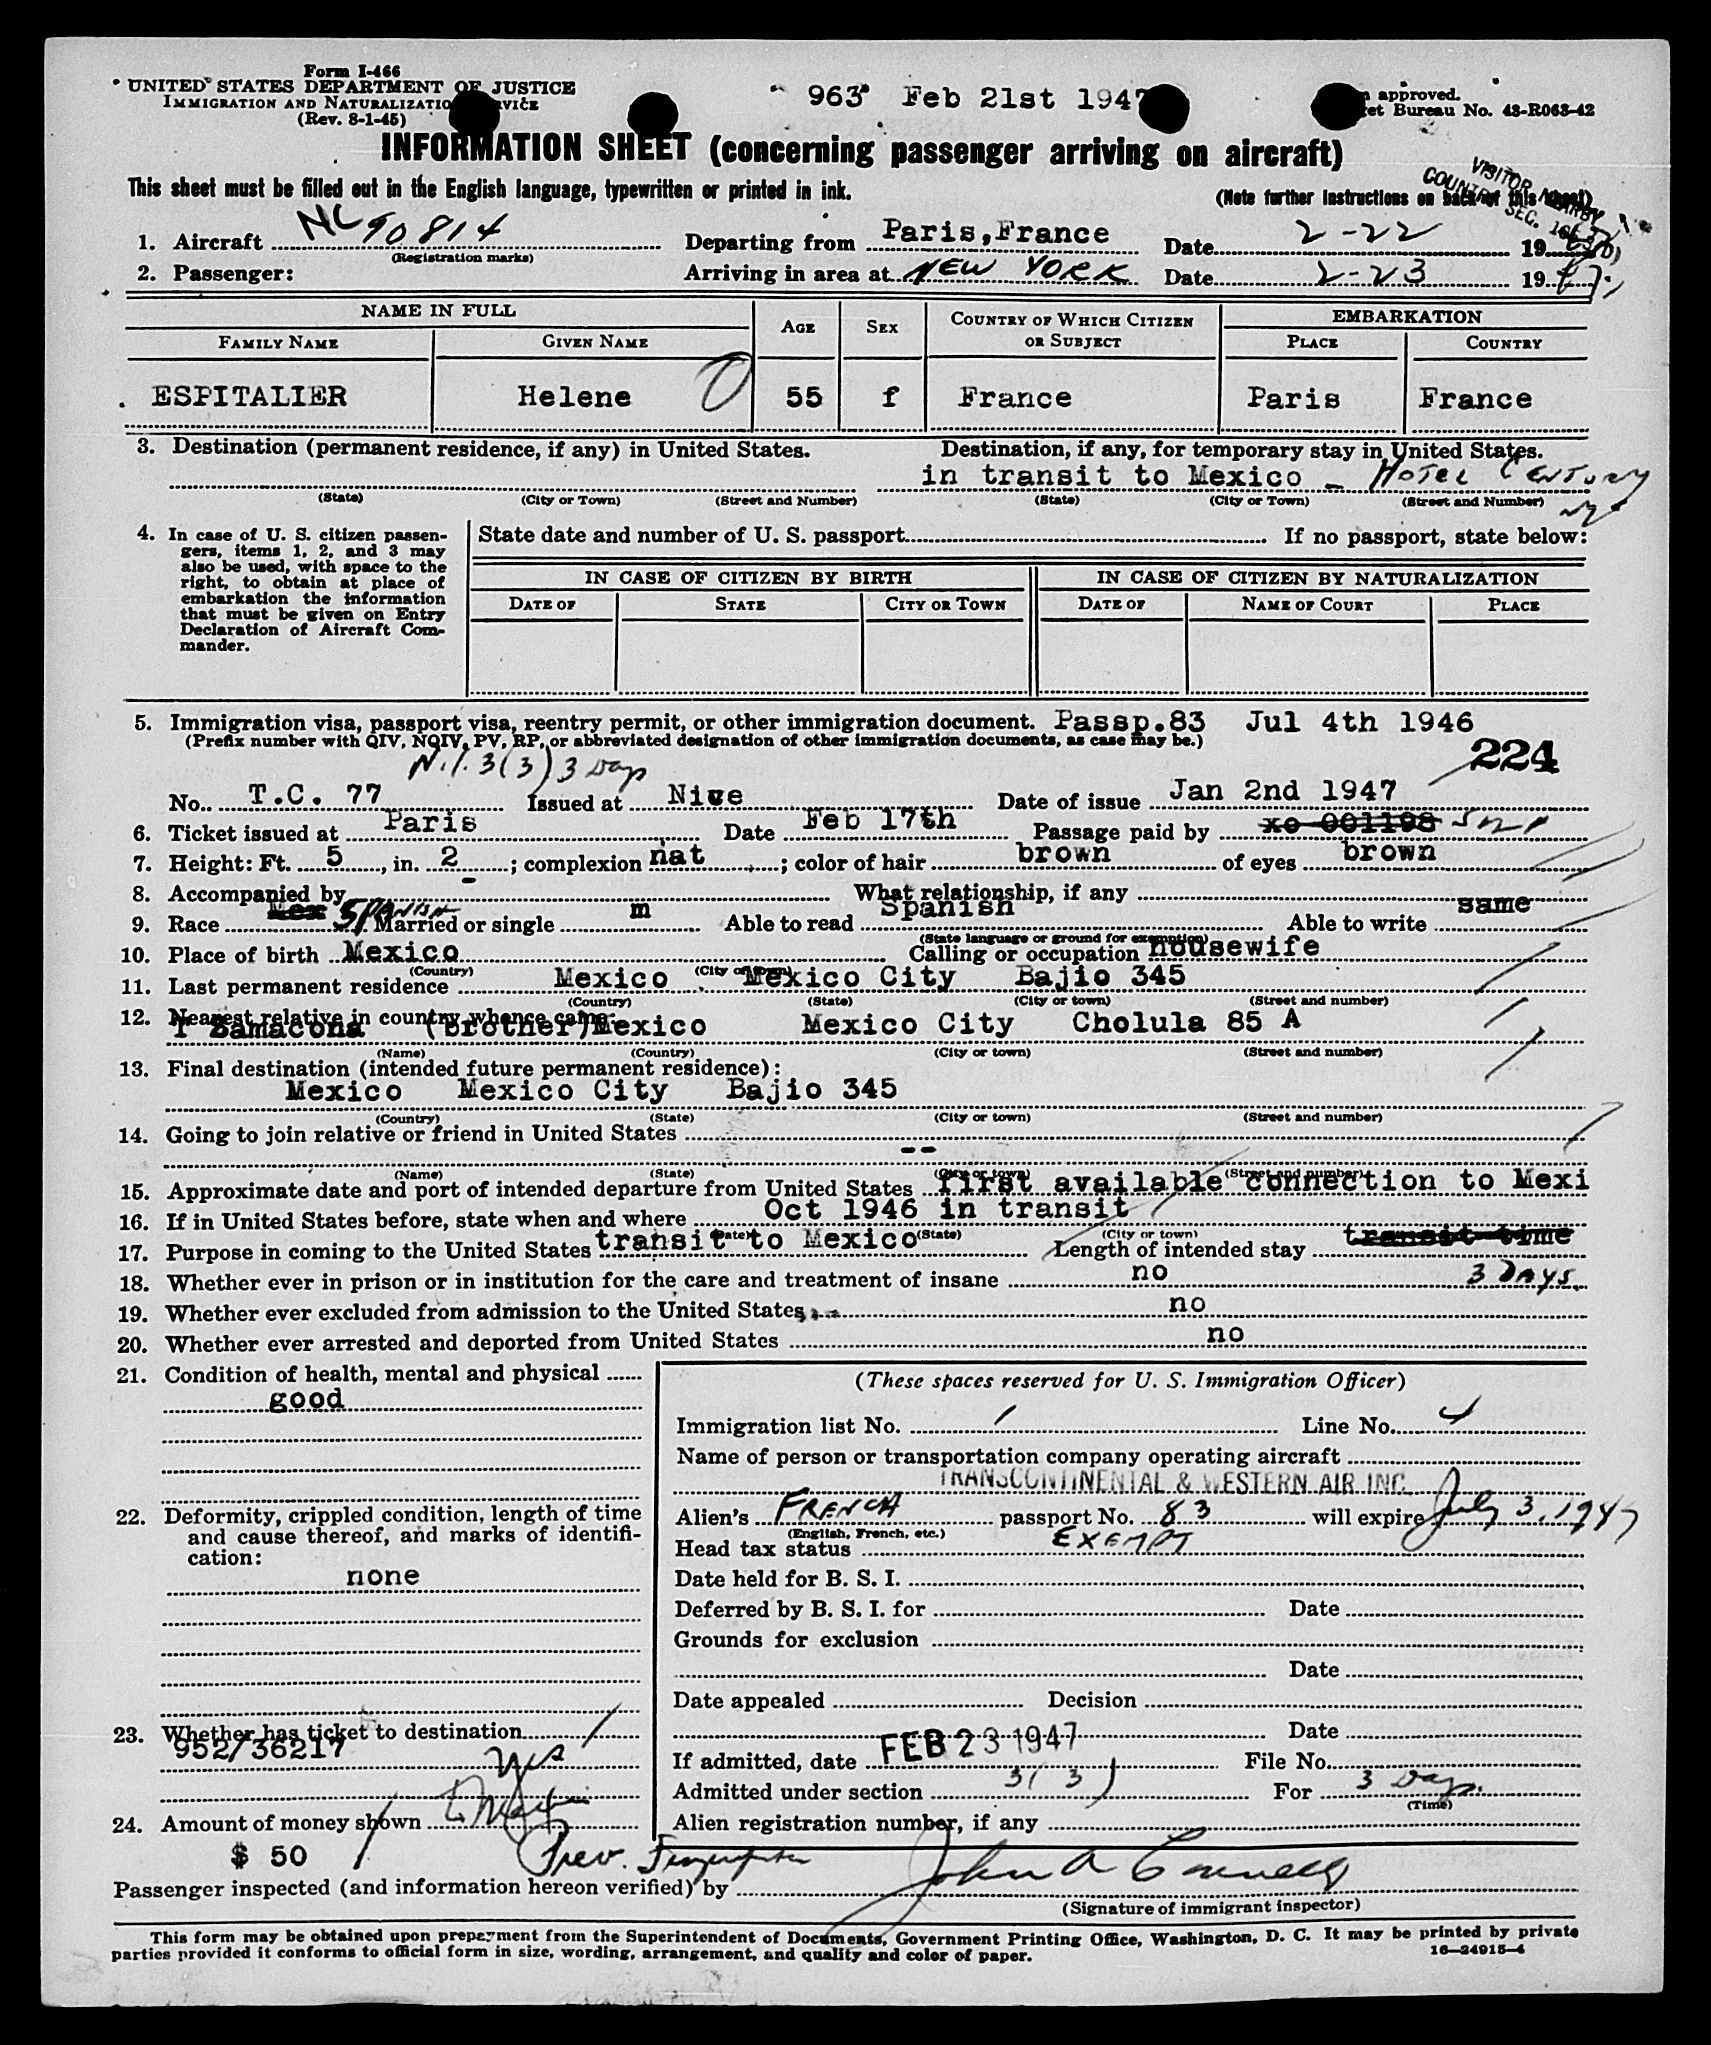 Form I-466
UNITED STATES DEPARTMENT OF JUSTICE
IMMIGRATION AND NATURALIZATION SERVICE
(Rev. 8-1-45)
963 Feb 21st 1947
approved.
Bureau No. 43-R063-42
INFORMATION SHEET (concerning passenger arriving on aircraft)
This sheet must be filled out in the English language, typewritten or printed in ink.
(Note further instructions on back of this sheet)
VISITOR NEARBY
COUNTRY SEC.
1. Aircraft NC 90814 Departing from Paris, France Date 2-22 19 47
(Registration marks)
2. Passenger: Arriving in area at NEW YORK Date 2-23 19 47
NAME IN FULL AGE SEX COUNTRY OF WHICH CITIZEN OR SUBJECT EMBARKATION
FAMILY NAME GIVEN NAME PLACE COUNTRY
ESPITALIER Helene 55 f France Paris France
3. Destination (permanent residence, if any) in United States. Destination, if any, for temporary stay in United States.
in transit to Mexico - HOTEL CENTURY
NY
(State) (City or Town) (Street and Number) (State) (City or Town) (Street and Number)
4. In case of U. S. citizen passen-
gers, items 1, 2, and 3 may
also be used, with space to the
right, to obtain at place of
embarkation the information
that must be given on Entry
Declaration of Aircraft Com-
mander.
State date and number of U. S. passport If no passport, state below:
IN CASE OF CITIZEN BY BIRTH IN CASE OF CITIZEN BY NATURALIZATION
DATE OF STATE CITY OR TOWN DATE OF NAME OF COURT PLACE
5. Immigration visa, passport visa, reentry permit, or other immigration document. Passp.83 Jul 4th 1946
(Prefix number with QIV, NQIV, PV, RP, or abbreviated designation of other immigration documents, as case may be.)
224
N.I. 3(3) 3 Days
No. T.C. 77 Issued at Nice Date of issue Jan 2nd 1947
6. Ticket issued at Paris Date Feb 17th Passage paid by xo 001198
7. Height: Ft. 5, in. 2; complexion nat; color of hair brown of eyes brown
8. Accompanied by - What relationship, if any
9. Race Mex SPANISH Married or single m Able to read Spanish Able to write same
(State language or ground for exemption)
10. Place of birth Mexico Calling or occupation housewife
(Country) (City or town)
11. Last permanent residence Mexico Mexico City Bajio 345
(Country) (State) (City or town) (Street and number)
12. Nearest relative in country whence came:
T Samacona (brother) Mexico Mexico City Cholula 85 A
(Name) (Country) (City or town) (Street and number)
13. Final destination (intended future permanent residence):
Mexico Mexico City Bajio 345
(Country) (State) (City or town) (Street and number)
14. Going to join relative or friend in United States
--
(Name) (State) (City or town) (Street and number)
15. Approximate date and port of intended departure from United States first available connection to Mexi
16. If in United States before, state when and where Oct 1946 in transit
(Date) (State) (City or town)
17. Purpose in coming to the United States transit to Mexico Length of intended stay transit time
3 DAYS
18. Whether ever in prison or in institution for the care and treatment of insane no
19. Whether ever excluded from admission to the United States no
20. Whether ever arrested and deported from United States no
21. Condition of health, mental and physical
good
22. Deformity, crippled condition, length of time
and cause thereof, and marks of identifi-
cation:
none
23. Whether has ticket to destination
952/36217
yes
to Mexico
24. Amount of money shown
$ 50
Prev. Fingerprinted
(These spaces reserved for U. S. Immigration Officer)
Immigration list No. 1 Line No. 4
Name of person or transportation company operating aircraft
TRANSCONTINENTAL & WESTERN AIR INC.
Alien's FRENCH passport No. 83 will expire July 3, 1947
(English, French, etc.)
Head tax status EXEMPT
Date held for B. S. I.
Deferred by B. S. I. for Date
Grounds for exclusion
Date
Date appealed Decision
Date
If admitted, date FEB 23 1947 File No.
Admitted under section 3(3) For 3 Days.
(Time)
Alien registration number, if any
Passenger inspected (and information hereon verified) by John A Connelly
(Signature of immigrant inspector)
This form may be obtained upon prepayment from the Superintendent of Documents, Government Printing Office, Washington, D. C. It may be printed by private
parties provided it conforms to official form in size, wording, arrangement, and quality and color of paper.
16-24915-4